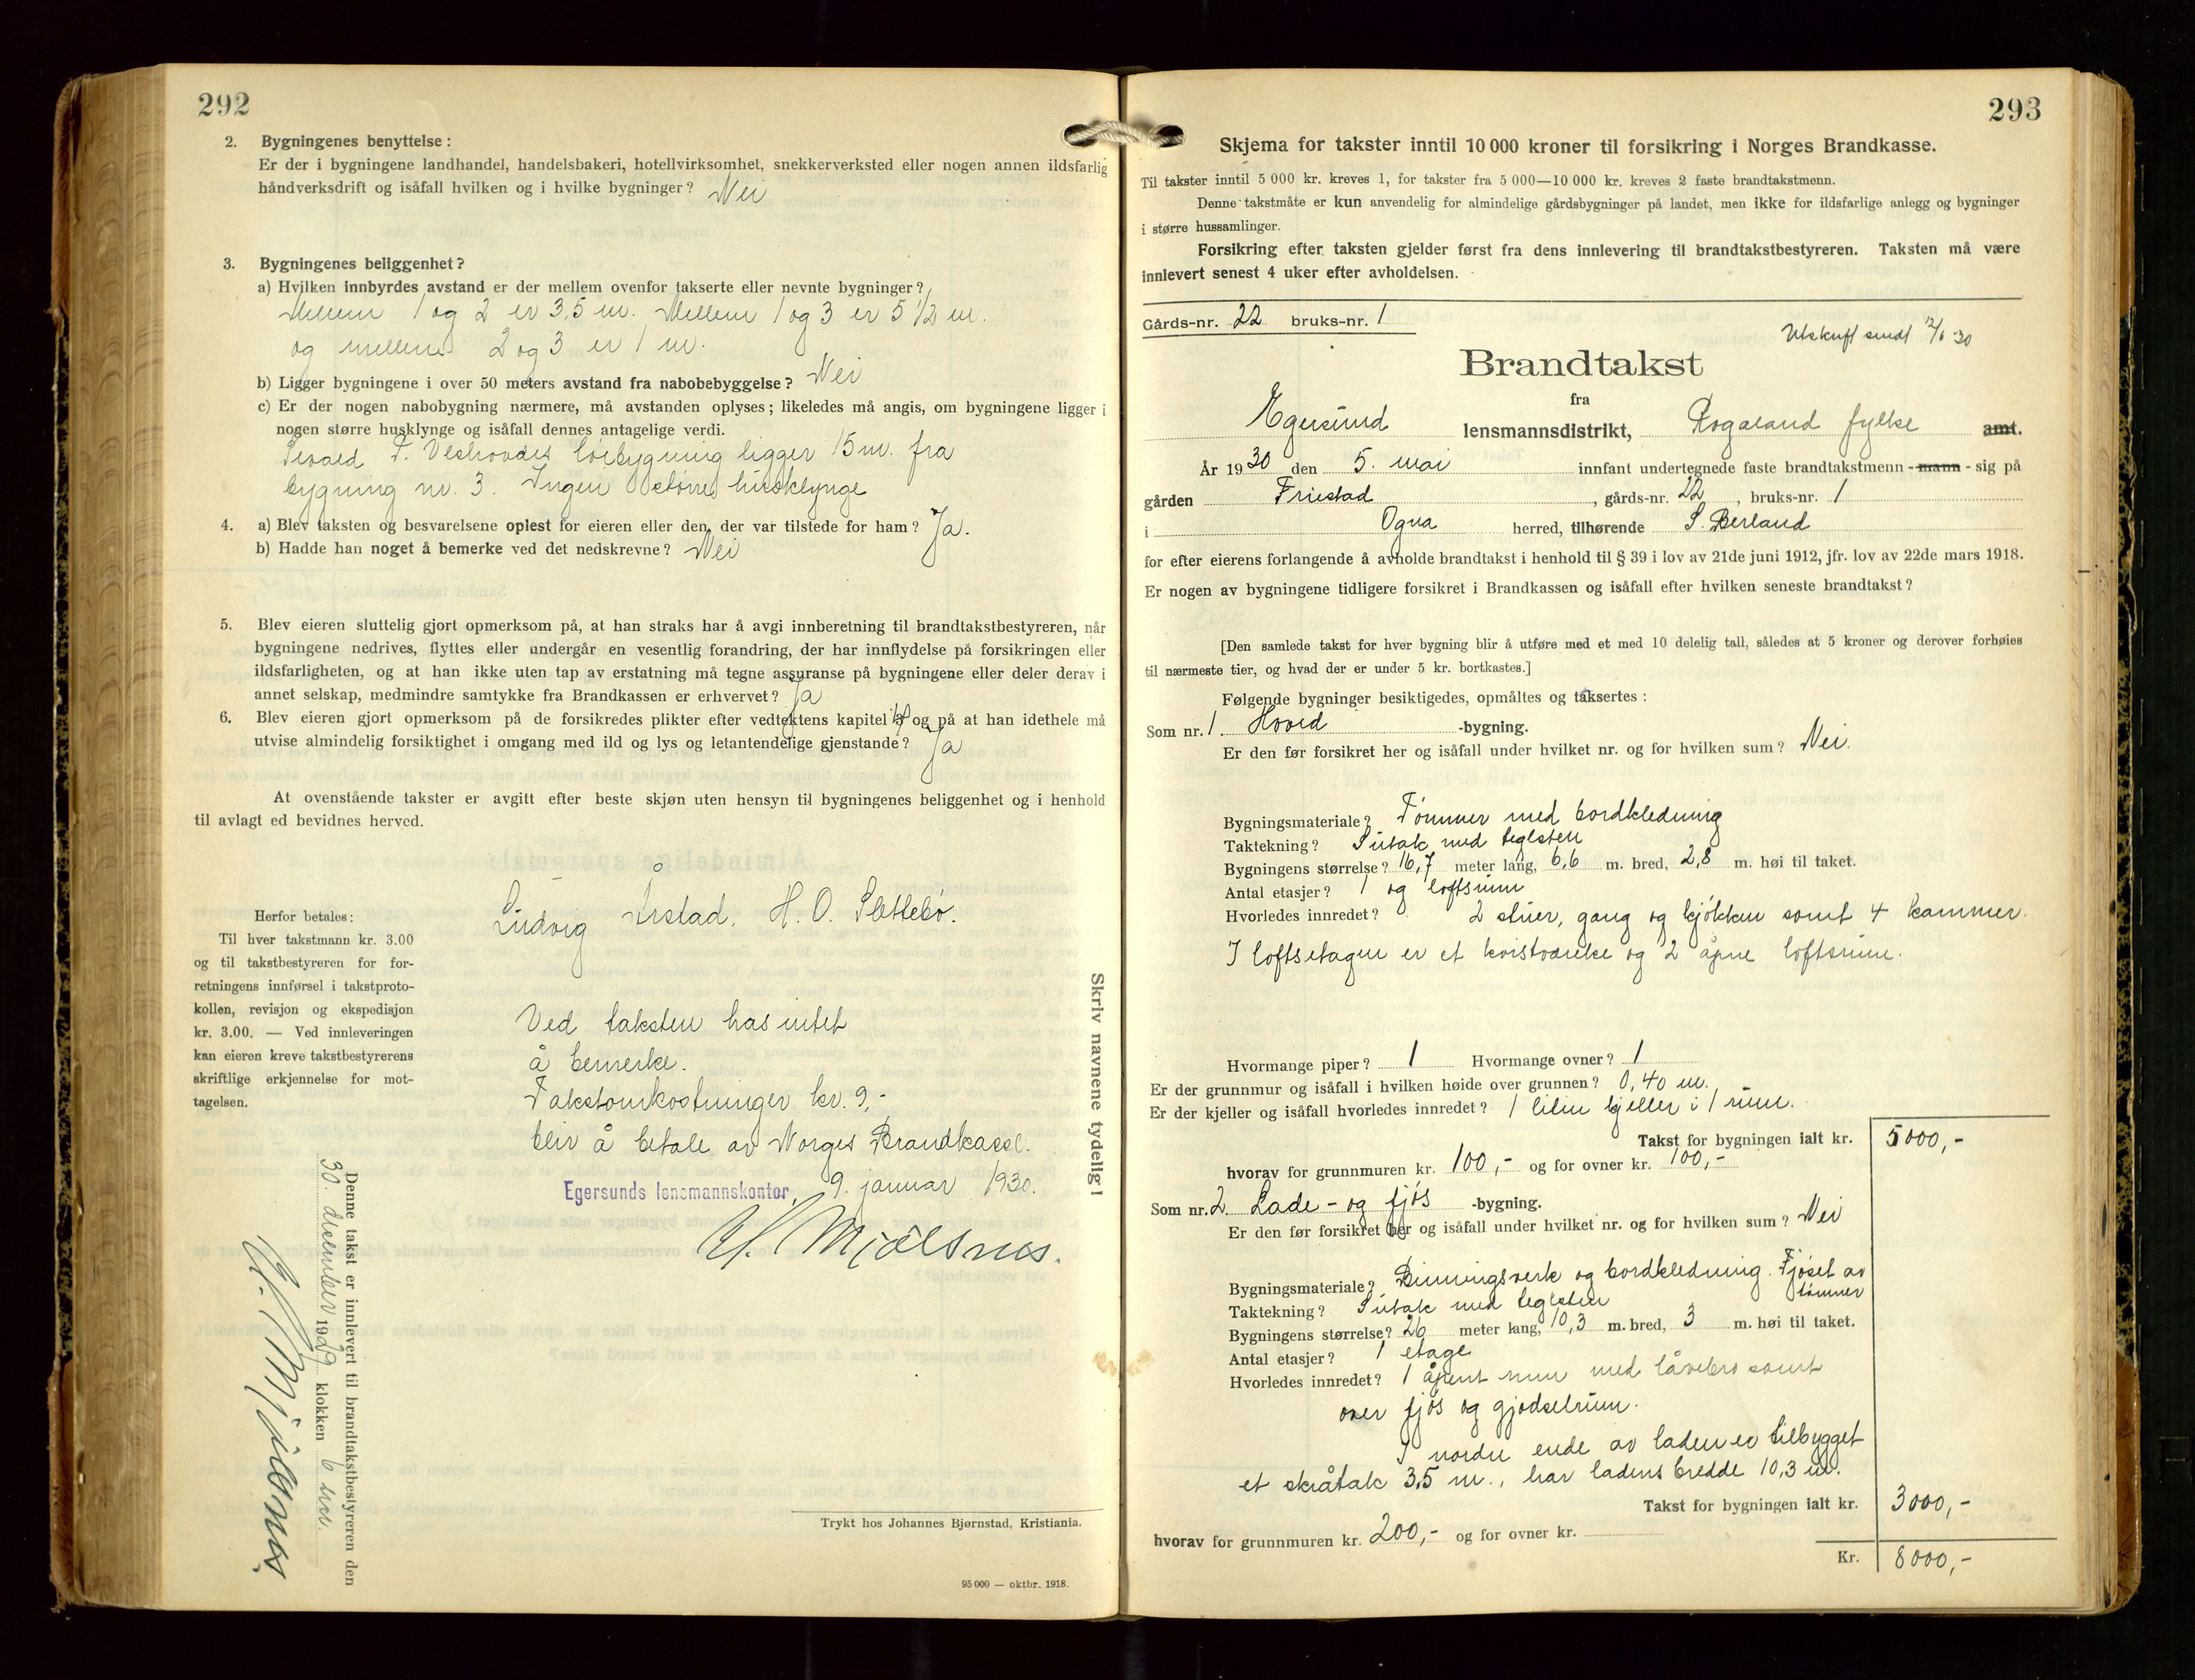 292
2. Bygningenes benyttelse:
Er der i bygningene landhandel, handelsbakeri, hotellvirksomhet, snekkerverksted eller nogen annen ildsfarlig
håndverksdrift og isåfall hvilken og i hvilke bygninger? Nei
3. Bygningenes beliggenhet?
a) Hvilken innbyrdes avstand er der mellem ovenfor takserte eller nevnte bygninger?
Mellem 1 og 2 er 3,5 m. Mellem 1 og 3 er 5 1/2 m.
og mellem 2 og 3 er 1 m.
b) Ligger bygningene i over 50 meters avstand fra nabobebyggelse? Nei
c) Er der nogen nabobygning nærmere, må avstanden oplyses; likeledes må angis, om bygningene ligger i
nogen større husklynge og isåfall dennes antagelige verdi.
F. løebygning ligger 15 m. fra
bygning nr. 3. Ingen større husklynge
4. a) Blev taksten og besvarelsene oplest for eieren eller den, der var tilstede for ham? Ja.
b) Hadde han noget å bemerke ved det nedskrevne? Nei
5. Blev eieren sluttelig gjort opmerksom på, at han straks har å avgi innberetning til brandtakstbestyreren, når
bygningene nedrives, flyttes eller undergår en vesentlig forandring, der har innflydelse på forsikringen eller
ildsfarligheten, og at han ikke uten tap av erstatning må tegne assuranse på bygningene eller deler derav i
annet selskap, medmindre samtykke fra Brandkassen er erhvervet? Ja
6. Blev eieren gjort opmerksom på de forsikredes plikter efter vedtektens kapitel og på at han idethele må
utvise almindelig forsiktighet i omgang med ild og lys og letantendelige gjenstande? Ja
At ovenstående takster er avgitt efter beste skjøn uten hensyn til bygningenes beliggenhet og i henhold
til avlagt ed bevidnes herved.
Ludvig Årstad. H. O. Slettebø.
Herfor betales:
Til hver takstmann kr. 3.00
og til takstbestyreren for for-
retningens innførsel i takstproto-
kollen, revisjon og ekspedisjon
kr. 3.00. — Ved innleveringen
kan eieren kreve takstbestyrerens
skriftlige erkjennelse for mot-
tagelsen.
Ved taksten has intet
å bemerke.
Takstomkostninger kr. 9,-
blir å betale av Norges Brandkasse.
Egersunds lensmannskontor, 9. januar 1930.
H. Mjølsnes.
Skriv navnene tydelig!
Denne takst er innlevert til brandtakstbestyreren den
30. desember 1929 klokken 6 nov.
H. Mjølsnes.
Trykt hos Johannes Bjørnstad, Kristiania.
95 000 — oktbr. 1918.
293
Skjema for takster inntil 10 000 kroner til forsikring i Norges Brandkasse.
Til takster inntil 5 000 kr. kreves 1, for takster fra 5 000—10 000 kr. kreves 2 faste brandtakstmenn.
Denne takstmåte er kun anvendelig for almindelige gårdsbygninger på landet, men ikke for ildsfarlige anlegg og bygninger
i større hussamlinger.
Forsikring efter taksten gjelder først fra dens innlevering til brandtakstbestyreren. Taksten må være
innlevert senest 4 uker efter avholdelsen.
Gårds-nr. 22 bruks-nr. 1
Utskrift sendt 12/6 30
Brandtakst
fra
Egersund lensmannsdistrikt, Rogaland fylke amt.
År 1930 den 5. mai innfant undertegnede faste brandtakstmenn - mann - sig på
gården Friestad, gårds-nr. 22, bruks-nr. 1
i Ogna herred, tilhørende S. Berland
for efter eierens forlangende å avholde brandtakst i henhold til § 39 i lov av 21de juni 1912, jfr. lov av 22de mars 1918.
Er nogen av bygningene tidligere forsikret i Brandkassen og isåfall efter hvilken seneste brandtakst?
[Den samlede takst for hver bygning blir å utføre med et med 10 delelig tall, således at 5 kroner og derover forhøies
til nærmeste tier, og hvad der er under 5 kr. bortkastes.]
Følgende bygninger besiktigedes, opmåltes og taksertes:
Som nr. 1. Hoved -bygning.
Er den før forsikret her og isåfall under hvilket nr. og for hvilken sum? Nei.
Bygningsmateriale? Tømmer med bordkledning
Taktekning? Sutak med teglsten
Bygningens størrelse? 16,7 meter lang, 6,6 m. bred, 2,8 m. høi til taket.
Antal etasjer? 1 og loftsrum
Hvorledes innredet? 2 stuer, gang og kjøkken samt 4 kammer.
I loftsetagen er et kvistværelse og 2 åpne loftsrum.
Hvormange piper? 1 Hvormange ovner? 1
Er der grunnmur og isåfall i hvilken høide over grunnen? 0,40 m.
Er der kjeller og isåfall hvorledes innredet? 1 liten kjeller i 1 rum.
Takst for bygningen ialt kr. 5000,-
hvorav for grunnmuren kr. 100,- og for ovner kr. 100,-
Som nr. 2. Lade - og fjøs -bygning.
Er den før forsikret her og isåfall under hvilket nr. og for hvilken sum? Nei
Bygningsmateriale? Binningsverk og bordkledning. Fjøset av
tømmer
Taktekning? Sutak med teglsten
Bygningens størrelse? 26 meter lang, 10,3 m. bred, 3 m. høi til taket.
Antal etasjer? 1 etage
Hvorledes innredet? 1 åpent rum med låvebro samt
over fjøs og gjødselrum.
I nordre ende av laden er tilbygget
et skråtak 3,5 m., har ladens bredde 10,3 m.
Takst for bygningen ialt kr. 3000,-
hvorav for grunnmuren kr. 200,- og for ovner kr.
Kr. 8000,-